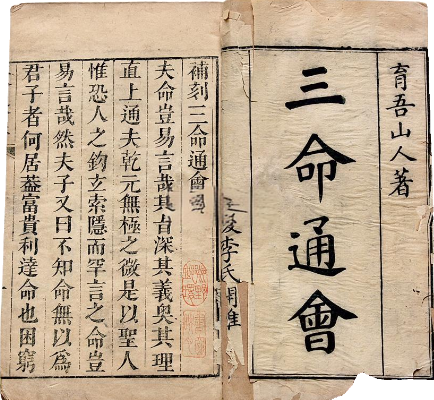 育吾山人著
三命通會
李氏
補刻三命通會
夫命豈易言哉其旨深其義奧其理
直上通夫乾元無極之微是以聖人
惟恐人之鉤玄索隱而罕言之命豈
易言哉然夫子又曰不知命無以為
君子者何居葢富貴利達命也困窮